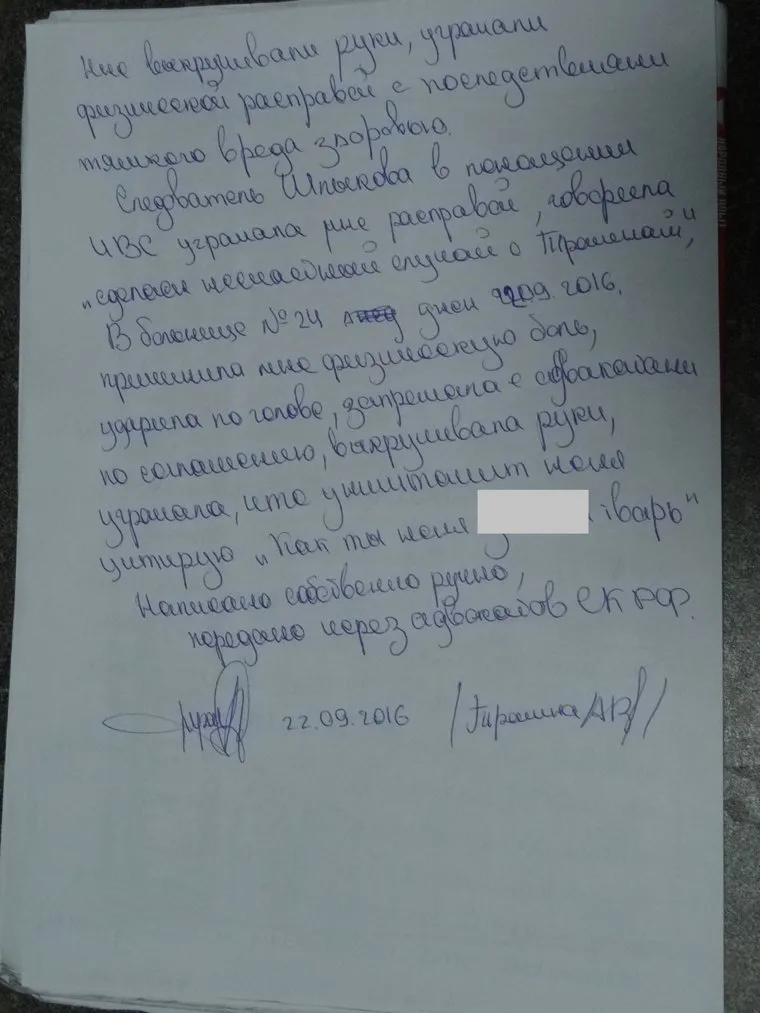 Мне выкручивали руки, угрожали
физической расправой с последствиями
тяжкого вреда здоровью.
Следователь Шпыкова в помещении
ИВС угрожала мне расправой, говорила
„сделаем несчастный случай с Тірошкой",
В больнице №24 днем 22.09.2016.
причинила мне физическую боль,
ударила по голове, запрещала с адвокатами
по соглашению, выкручивала руки,
угрожала, что уничтожит меня
цитирую „Как ты меня тварь"
Написано собственно ручно,
передано через адвокатов СК РФ.
22.09.2016